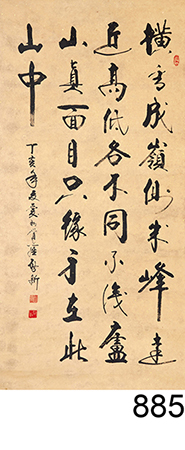 橫看成嶺側成峰遠
近高低各不同不識廬
山真面目只緣身在此
山中
丁亥年
885